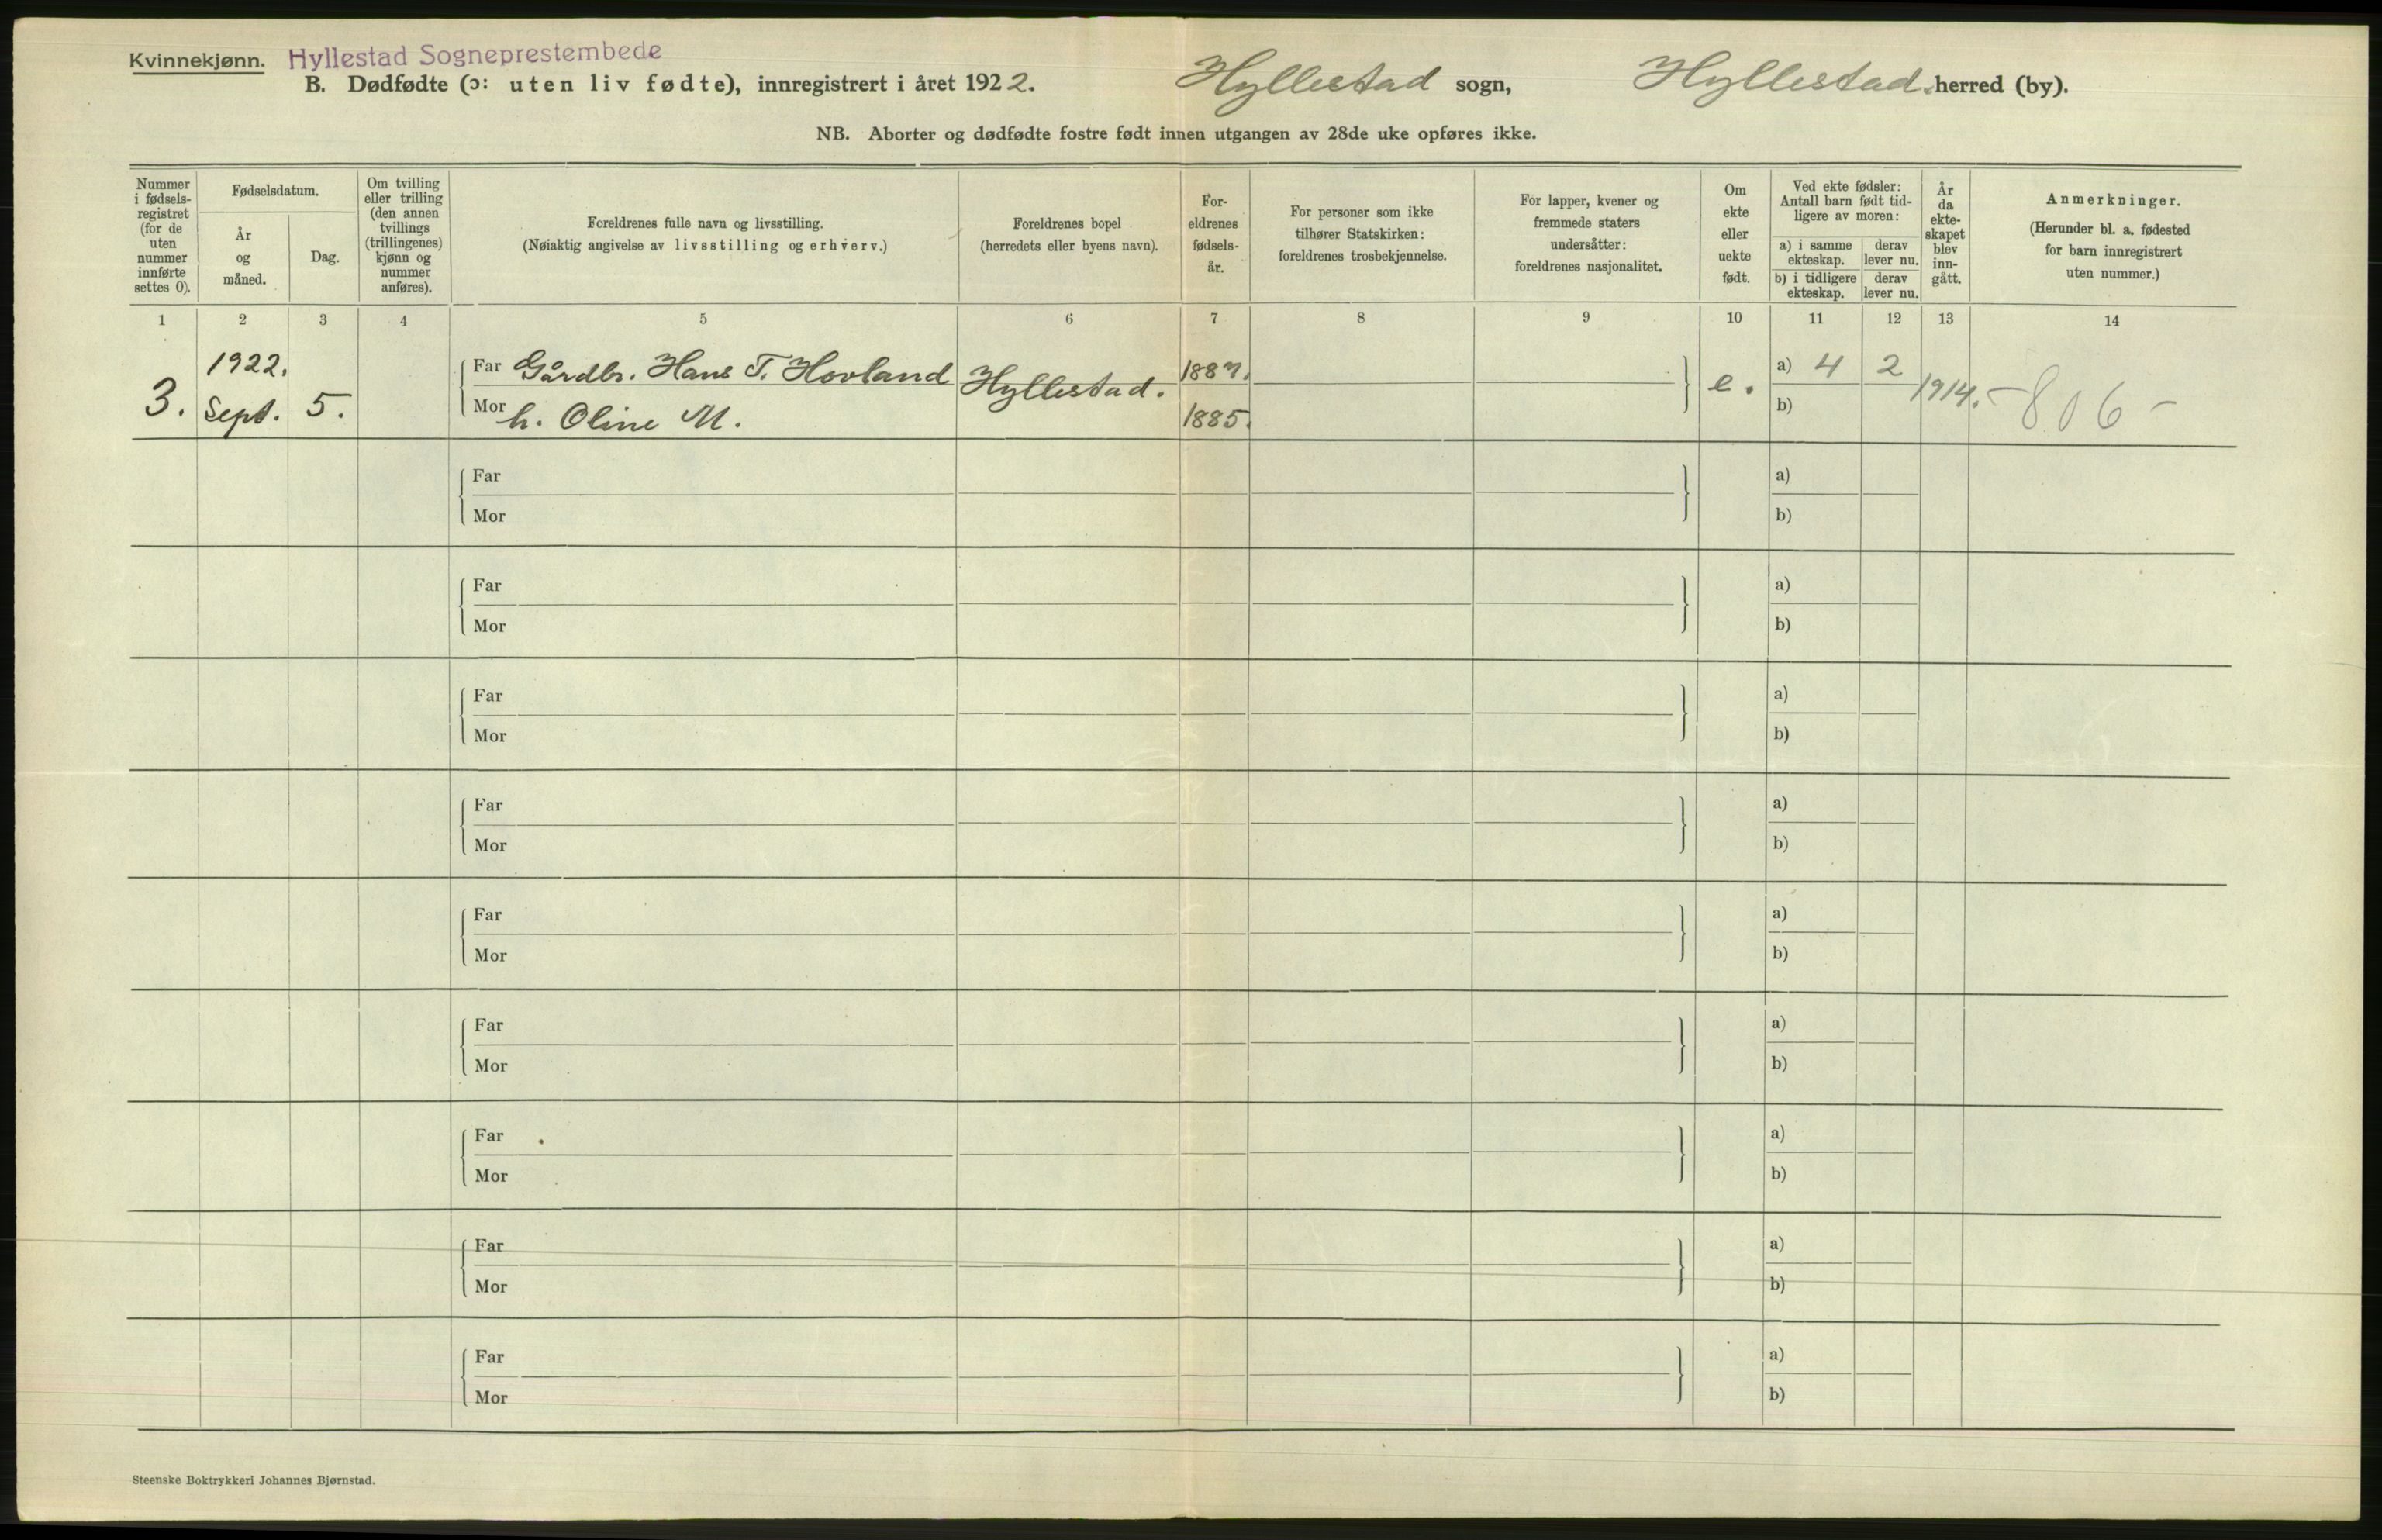 Kvinnekjønn. Hyllestad Sogneprestembede
B. Dødfødte (ɔ: uten liv fødte), innregistrert i året 1922. Hyllestad sogn, Hyllestad herred (by).
NB. Aborter og dødfødte fostre født innen utgangen av 28de uke opføres ikke.
Nummer
i fødsels-
registret
(for de
uten
nummer
innførte
settes 0).
Fødselsdatum.
År
og
måned.
Dag.
Om tvilling
eller trilling
(den annen
tvillings
(trillingenes)
kjønn og
nummer
anføres).
Foreldrenes fulle navn og livsstilling.
(Nøiaktig angivelse av livsstilling og erhverv.)
Foreldrenes bopel
(herredets eller byens navn).
For-
eldrenes
fødsels-
år.
For personer som ikke
tilhører Statskirken:
foreldrenes trosbekjennelse.
For lapper, kvener og
fremmede staters
undersåtter:
foreldrenes nasjonalitet.
Om
ekte
eller
uekte
født.
Ved ekte fødsler:
Antall barn født tid-
ligere av moren:
a) i samme
ekteskap.
derav
lever nu.
b) i tidligere
ekteskap.
derav
lever nu.
År
da
ekte-
skapet
blev
inn-
gått.
Anmerkninger.
(Herunder bl. a. fødested
for barn innregistrert
uten nummer.)
1 2 3 4 5 6 7 8 9 10 11 12 13 14
3. 1922. Sept. 5.
Far Gårdbr. Hans T. Hovland
Mor h. Oline M.
Hyllestad.
1887.
1885.
e.
a) 4 2
b)
1914.
-806-
Far a)
Mor b)
Far a)
Mor b)
Far a)
Mor b)
Far a)
Mor b)
Far a)
Mor b)
Far a)
Mor b)
Far a)
Mor b)
Far a)
Mor b)
Far a)
Mor b)
Steenske Boktrykkeri Johannes Bjørnstad.